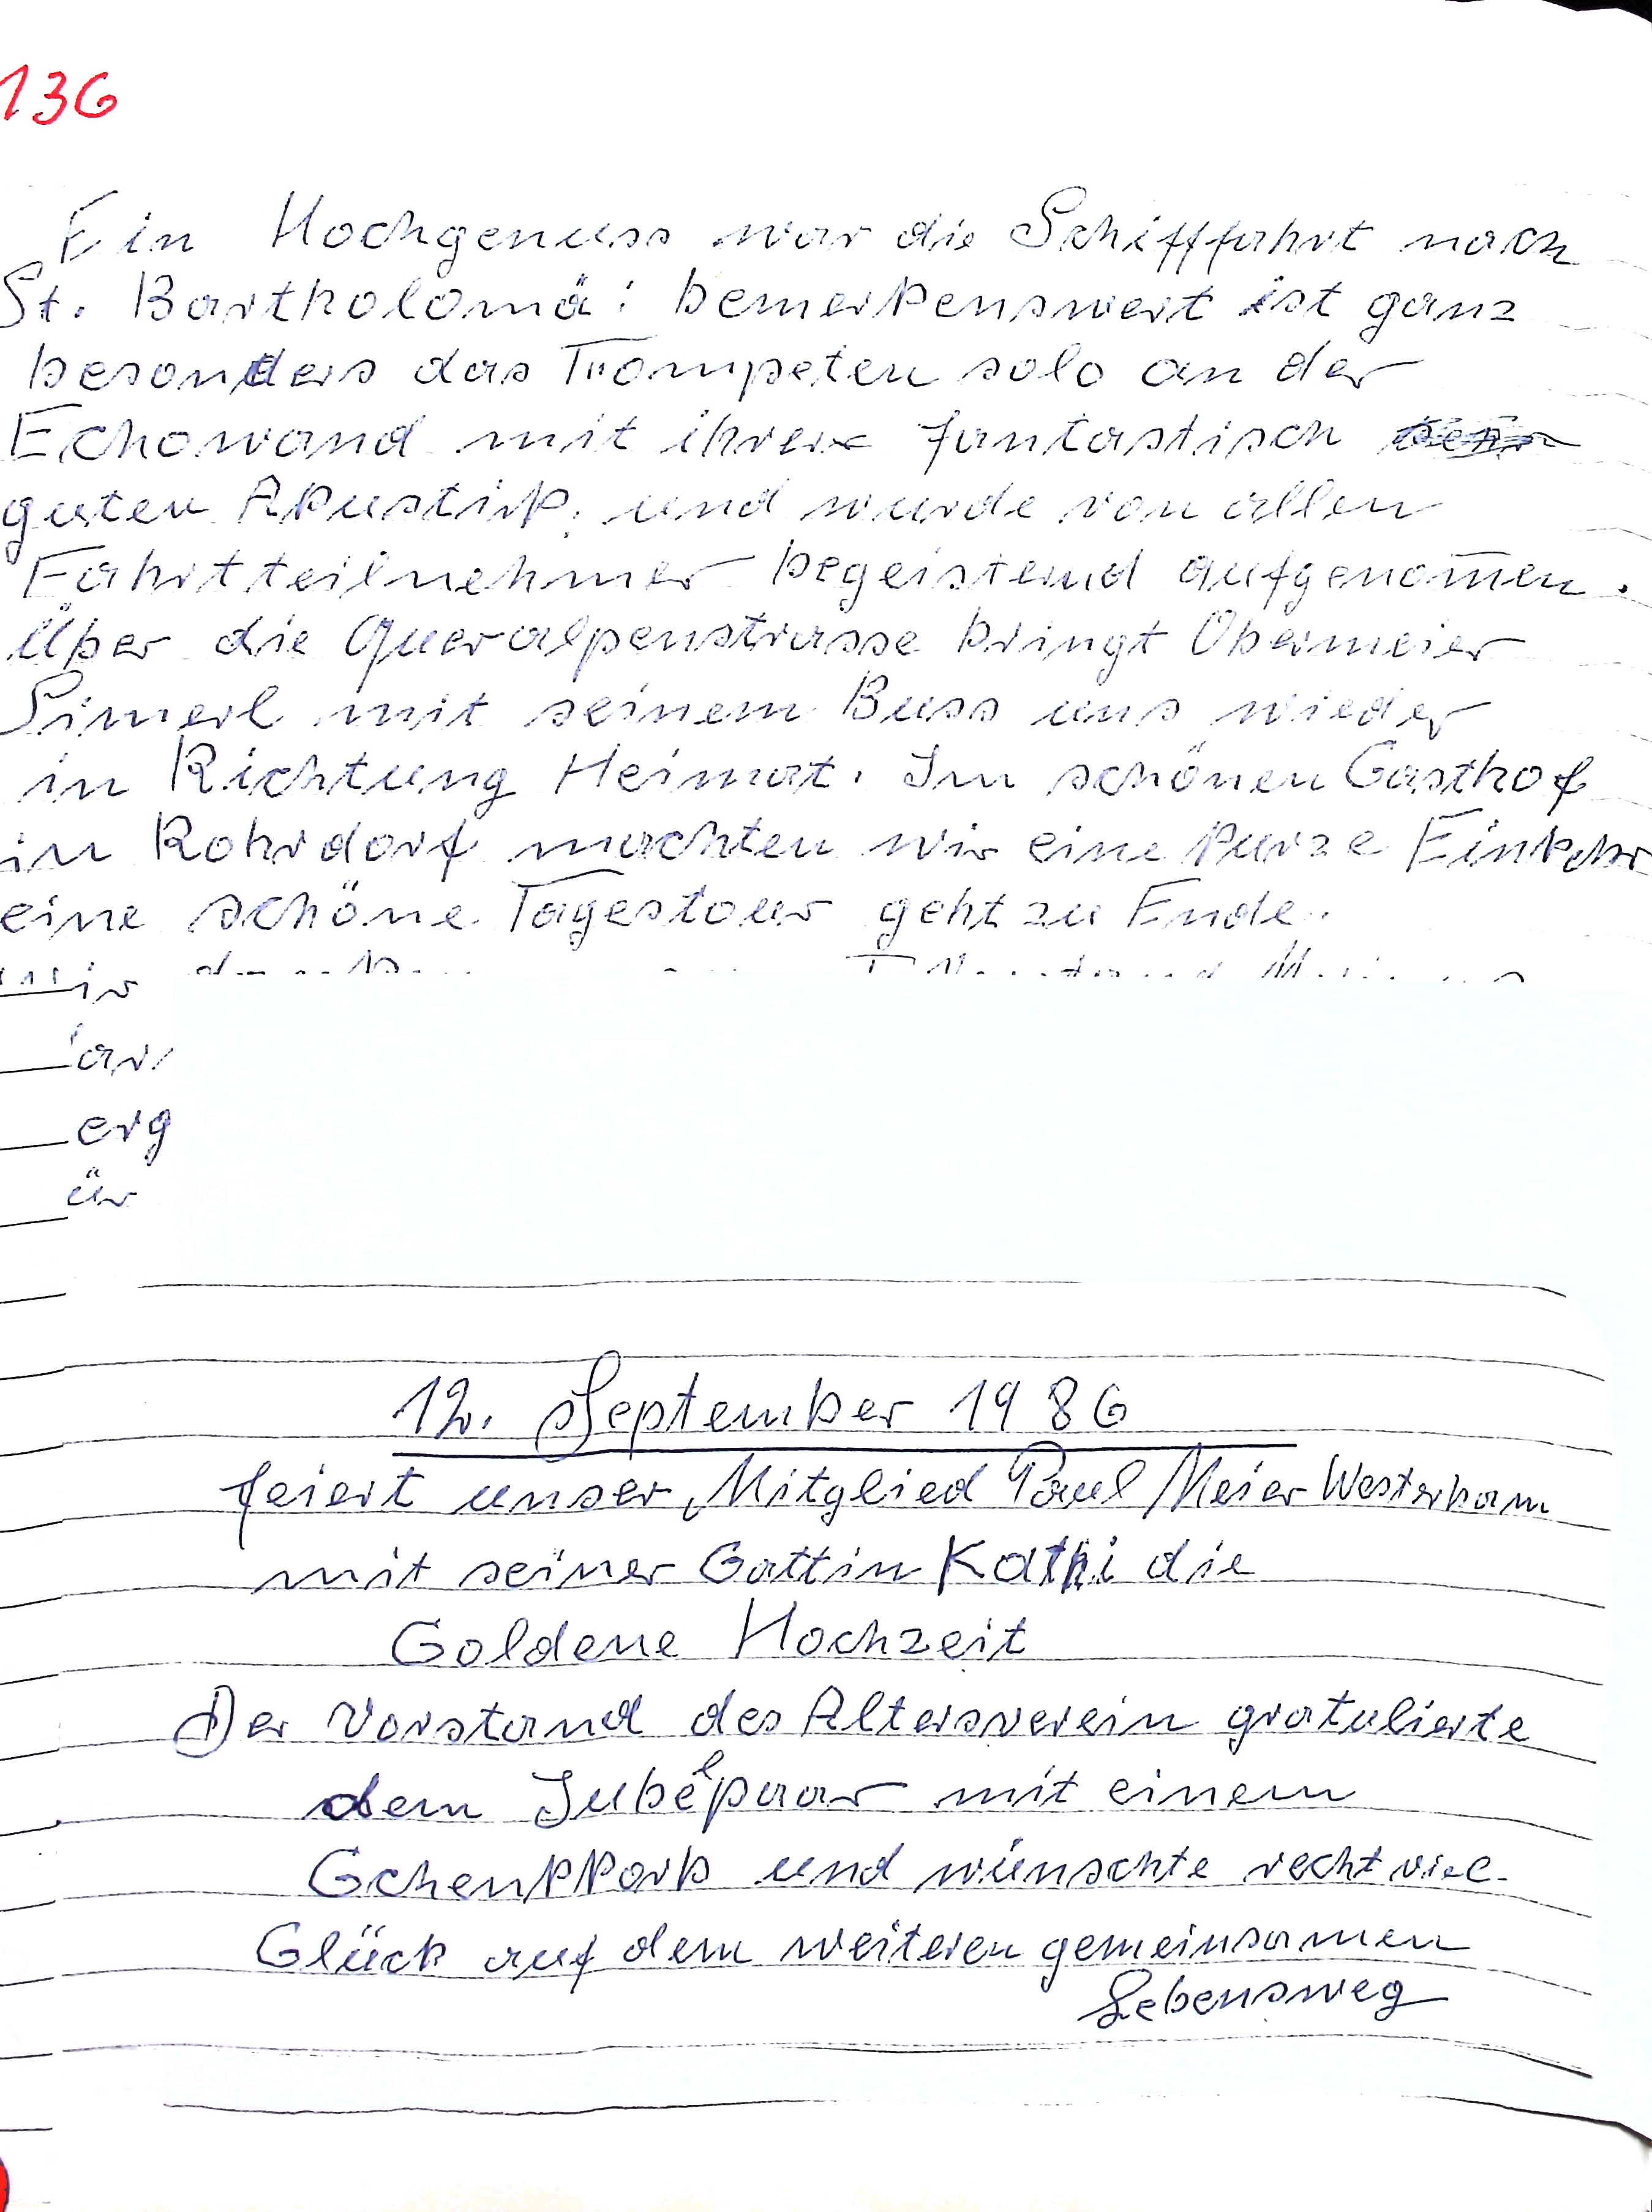 136
Ein Hochgenuss war die Schifffahrt nach
St. Bartholomä: bemerkenswert ist ganz
besonders das Trompeten solo an der
Echowand mit ihrer fantastisch
guten Akustik, und wurde von allen
Fahrtteilnehmer begeisternd aufgenom̄en.
Über die Queralpenstrasse bringt Obermeier
Simerl mit seinem Buss uns wieder
in Richtung Heimat. Im schönen Gasthof
in Rohrdorf machten wir eine kurze Einkehr
eine schöne Tagestour geht zu Ende.
erg
ür
12. September 1986
feiert unser Mitglied Paul Meier Westerham
mit seiner Gattin Kathi die
Goldene Hochzeit
Der Vorstand des Altersverein gratulierte
dem Jubelpaar mit einem
Gchenkkorb und wünschte recht viel
Glück auf dem weiteren gemeinsamen
Lebensweg